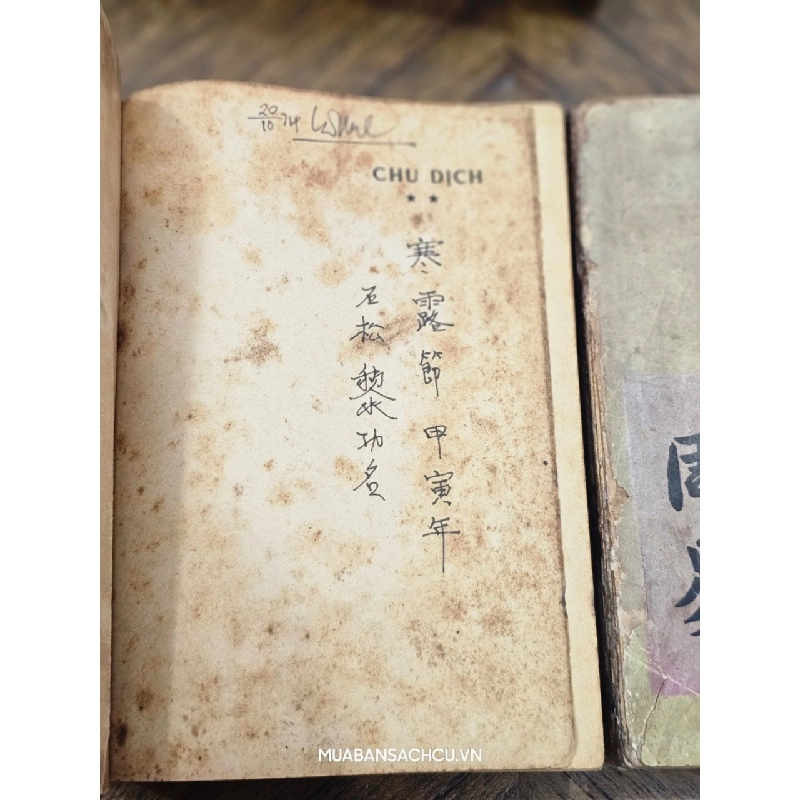 20/10 74
CHU DỊCH
★ ★
寒露節甲寅年
石松黎功名
MUABANSACHCU.VN